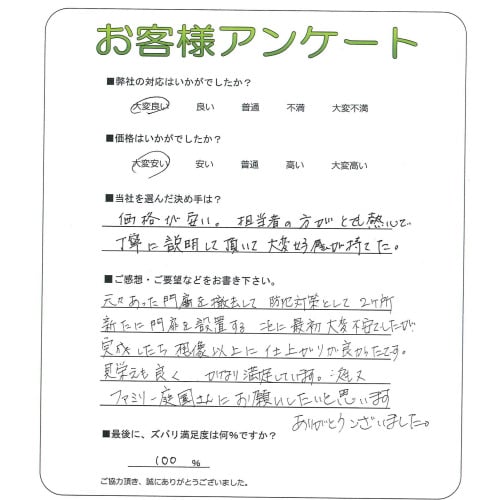 お客様アンケート
■弊社の対応はいかがでしたか？
大変良い 良い 普通 不満 大変不満
■価格はいかがでしたか？
大変安い 安い 普通 高い 大変高い
■当社を選んだ決め手は？
価格が安い。担当者の方がとても熱心で
丁寧に説明して頂いて大変好感が持てた。
■ご感想・ご要望などをお書き下さい。
元々あった門扉を撤去して 防犯対策として2ヶ所
新たに門扉を設置することに最初大変不安でしたが
完成したら想像以上に仕上がりが良かったです。
見栄えも良く かなり満足しています。
ファミリー庭園さんにお願いしたいと思います
ありがとうございました。
■最後に、ズバリ満足度は何%ですか？
100 %
ご協力頂き、誠にありがとうございました。